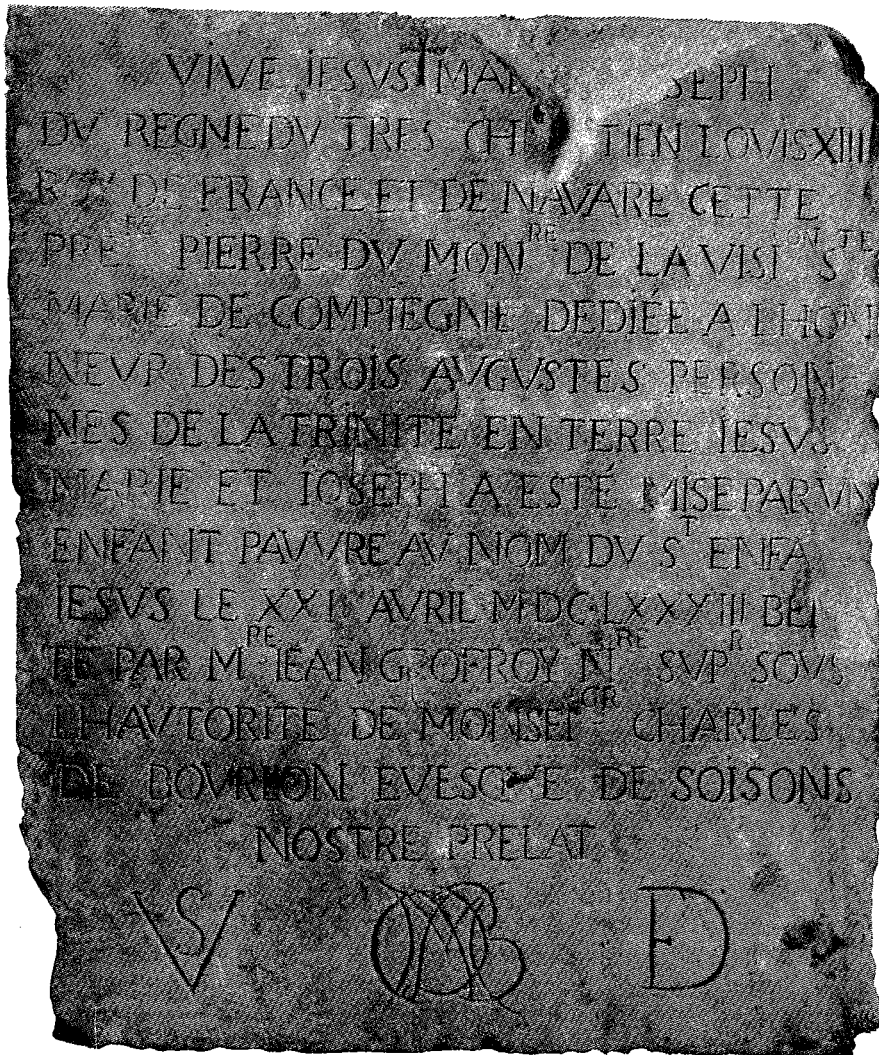 VIVE IESVS MAR SEPH
DV REGNE DV TRES CH TIEN LOVIS XIII
ROY DE FRANCE ET DE NAVARE CETTE
PRE^RE PIERRE DV MON^RE DE LA VISI^ON S^TE
MARIE DE COMPIEGNE DEDIÉE A LHON
NEVR DES TROIS AVGVSTES PERSON
NES DE LA TRINITE EN TERRE IESVS
MARIE ET IOSEPH A ESTÉ MISE PAR VN
ENFANT PAVVRE AV NOM DV S^T ENFA
IESVS LE AVRIL BEI
TE PAR M^RE IEAN GEOFROY N^RE SVP^R SOVS
LHAVTORITE DE MONSEI^GR CHARLES
DE BOVRLON EVESQVE DE SOISONS
NOSTRE PRELAT
VS D